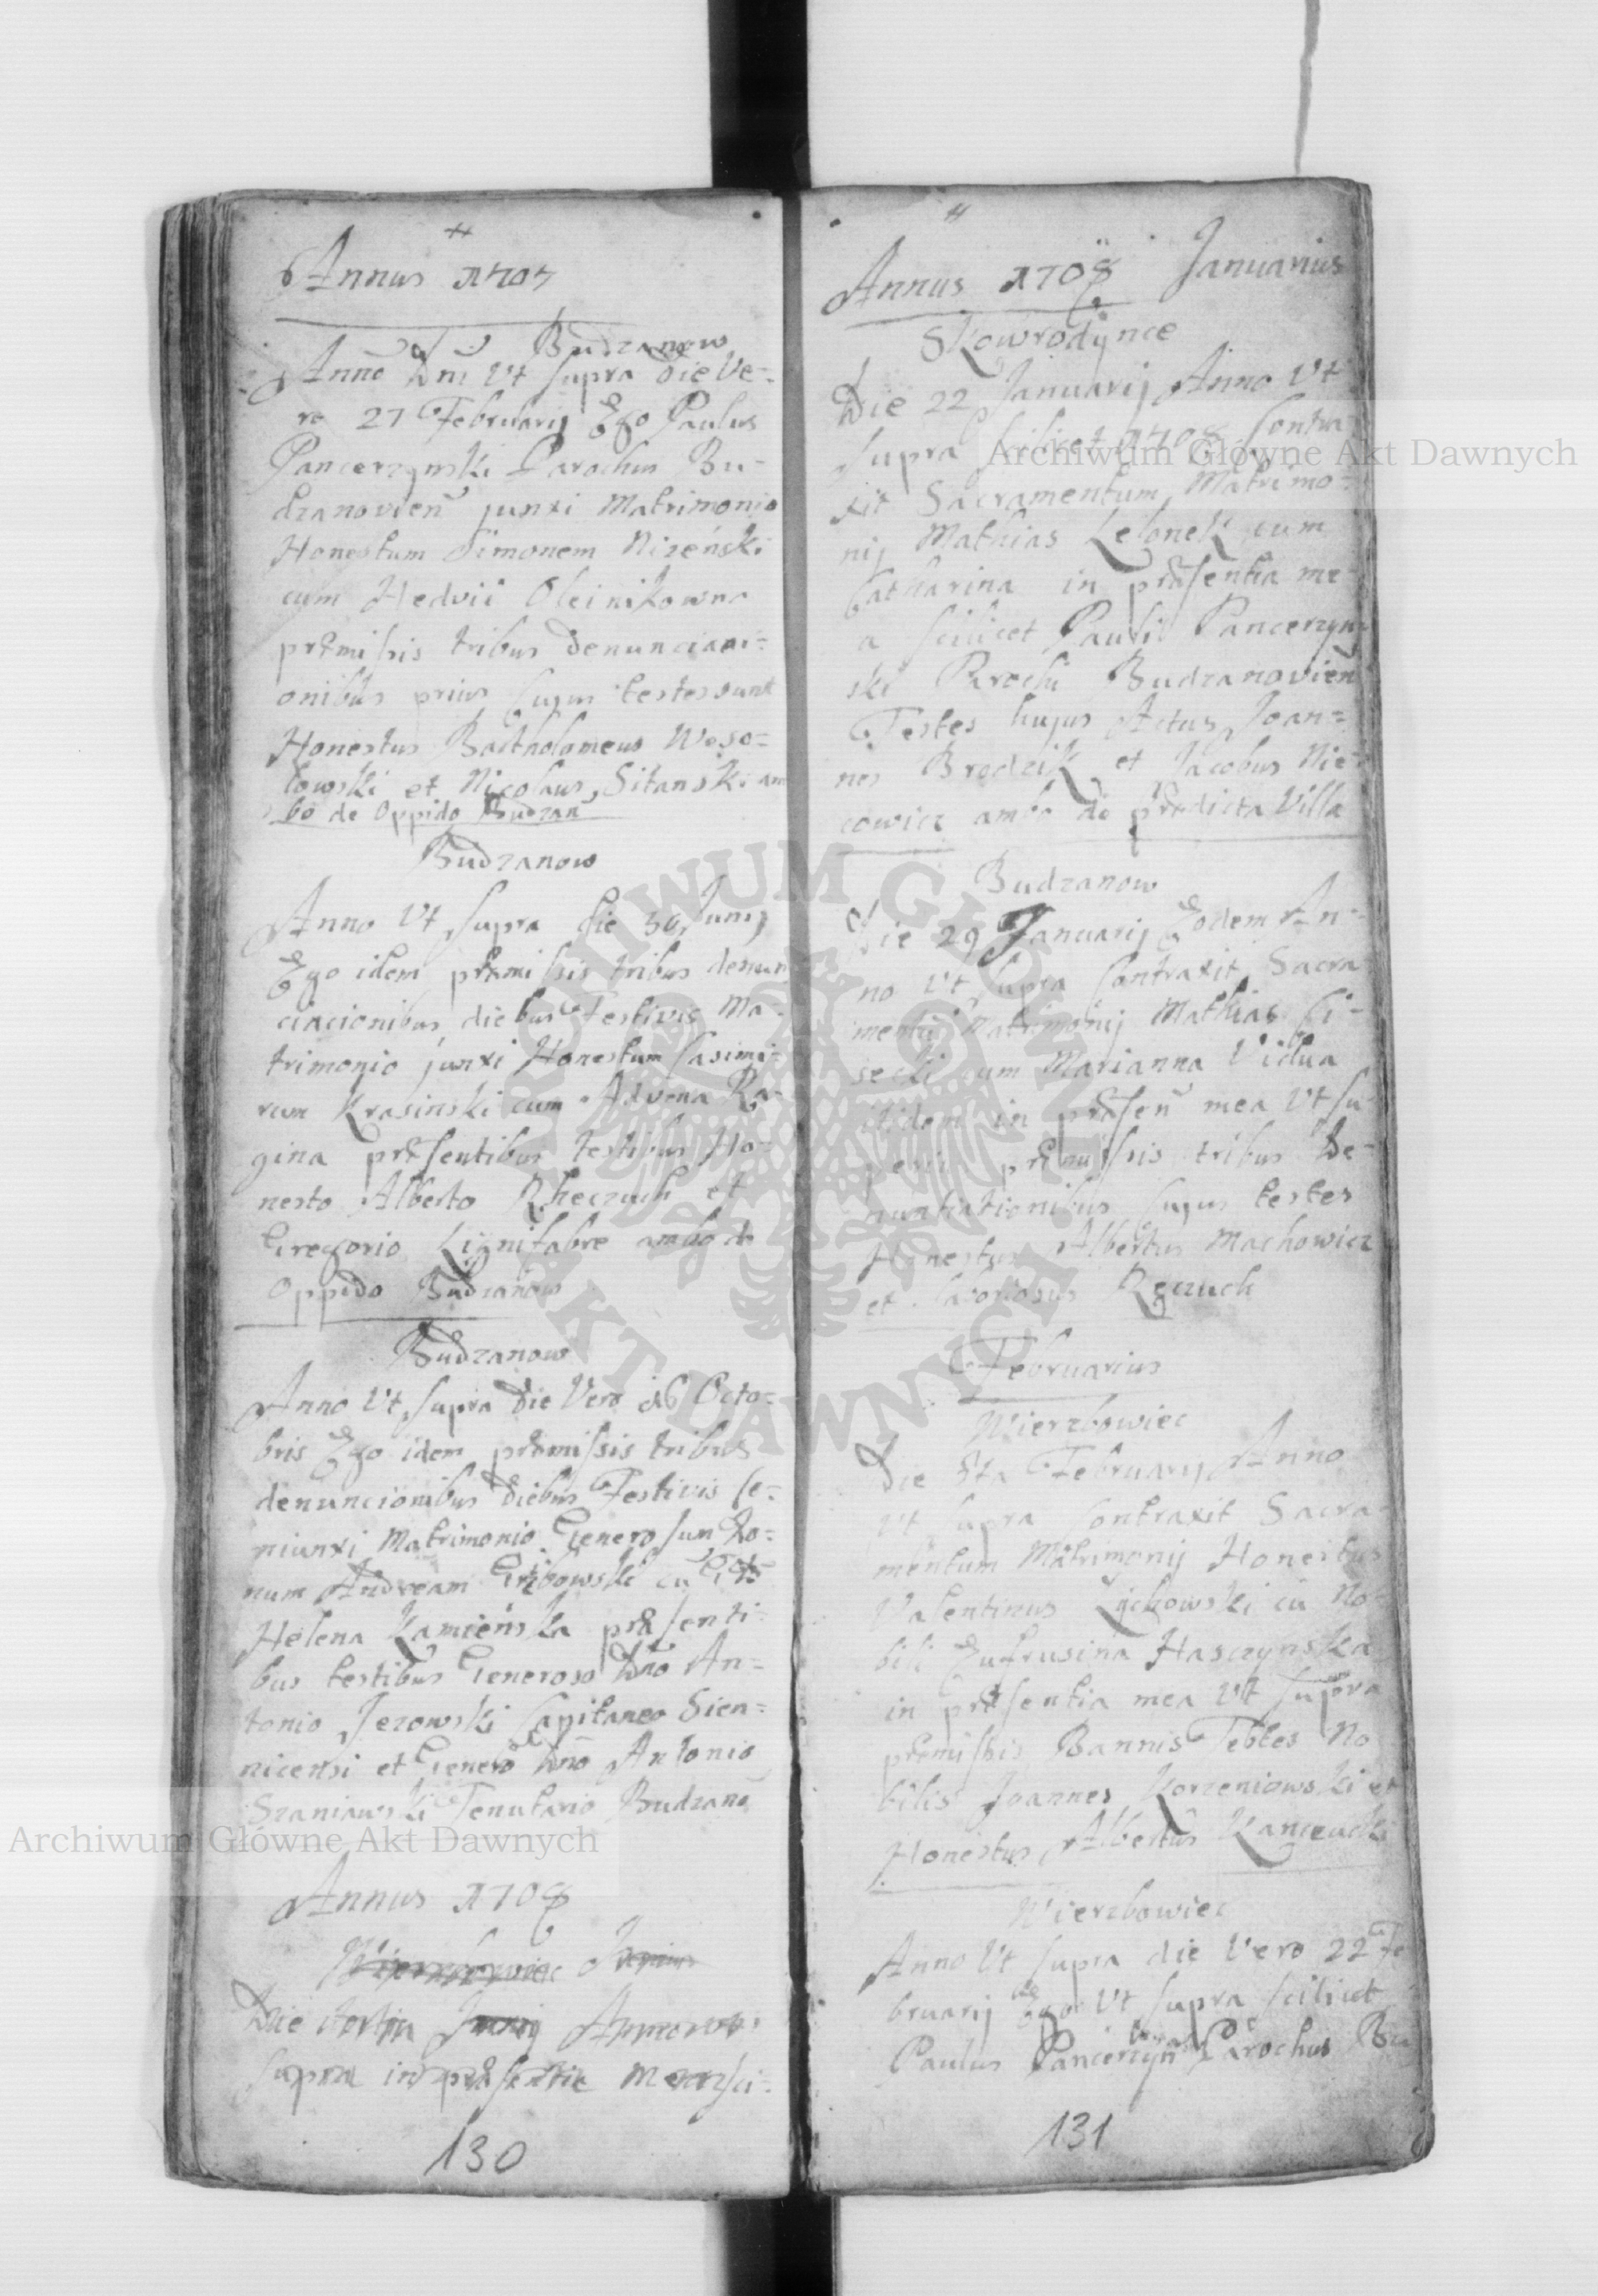 Annus 1707
Budzanow
Anno Dni Vt supra die Ve=
ro 27 Februarij Ego Paulus
Pancerzynski Parochus Bu=
dzanovien junxi Matrimonio
Honestum Simonem Nizeński
cum Hedvii Oleinikowna
præmissis tribus denunciaci=
onibus prius Cujus testes sunt
Honestus Bartholomeus Weso=
lowski et Nicolaus Sitanski am
bo de Oppido Budzan
Budzanow
Anno Vt supra die 30 Junij
Ego idem præmissis tribus denun
ciacionibus diebus Festivis Ma=
trimonio junxi Honestum Casimi=
rum Krasinski cum Advena Re=
gina præsentibus testibus Ho=
nesto Alberto Rheczuch et
Gregorio Lignifabre ambo de
Oppido Budzanow
Budzanow
Anno Vt supra Die Vero 16 Octo=
bris Ego idem præmissis tribus
denuncionibus diebus Festivis Co=
niunxi Matrimonio Generosum Do=
num Andream Gribowski cu
Helena Kamieńska præsenti=
bus testibus Generoso Dno An=
tonio Jezowski Capitaneo Sien=
nicensi et Genero Dno Antonio
Szaniawski Tenutario Budzano
Annus 1708
Wierzbowiec
Die Junij Anno vt
supra in præsentia Mea sci=
130
Annus 1708 Januarius
Skowrodynce
Die 22 Januarij Anno Vt
supra scilicet 1708 Contra=
xit Sacramentum Matrimo=
nij Mathias Lelonek cum
Catharina in præsentia me=
a scilicet Pauli Pancerzyn=
ski Parochi Budzanovien
Testes hujus Actus Joan=
nes Brodzik et Jacobus Nie=
cowicz ambo de prædicta Villa
Budzanow
Die 29 Januarij Eodem An=
no Vt supra Contraxit Sacra
mentu Matrimonij Mathias Ci=
secki cum Marianna Vidua
itidem in præsen mea Vt su=
præmissis tribus De=
nuntiationibus Cujus testes
Honestus Albertus Machowicz
et laboriosus Reczuch
Februarius
Wierzbowiec
Die 5ta Februarij Anno
Vt supra Contraxit Sacra=
mentum Matrimonij Honestus
Valentinus Lychowski cu No=
bili Eufrusina Hasczynska
in præsentia mea Vt supra
præmissis Bannis Testes No
bilis Joannes Korzeniowski et
Honestus Albertus Kanczucki
Wierzbowiec
Anno Vt supra die Vero 22 Fe
bruarij Ego Vt supra scilicet
Paulus Pancerzyn Parochus Bu
131
Archiwum Główne Akt Dawnych
Archiwum Główne Akt Dawnych
ARCHIWUM GŁÓWNE AKT DAWNYCH